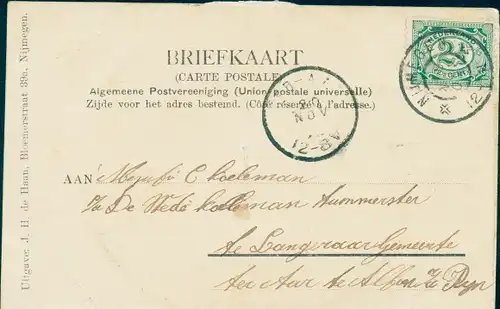 BRIEFKAART
(CARTE POSTALE)
Algemeene Postvereeniging (Union postale universelle)
Zijde voor het adres bestemd. (Côté réservé à l'adresse.)
NEDERLAND
2½
CENT
NOV
12-8V
AAN Mejufr C Koeleman
p/a De Wede Koeleman Hummerster
te Langeraar Gemeente
ter Aar te Alfen a/d Rijn
Uitgave: J. H. de Haan, Bloemerstraat 39a, Nijmegen.